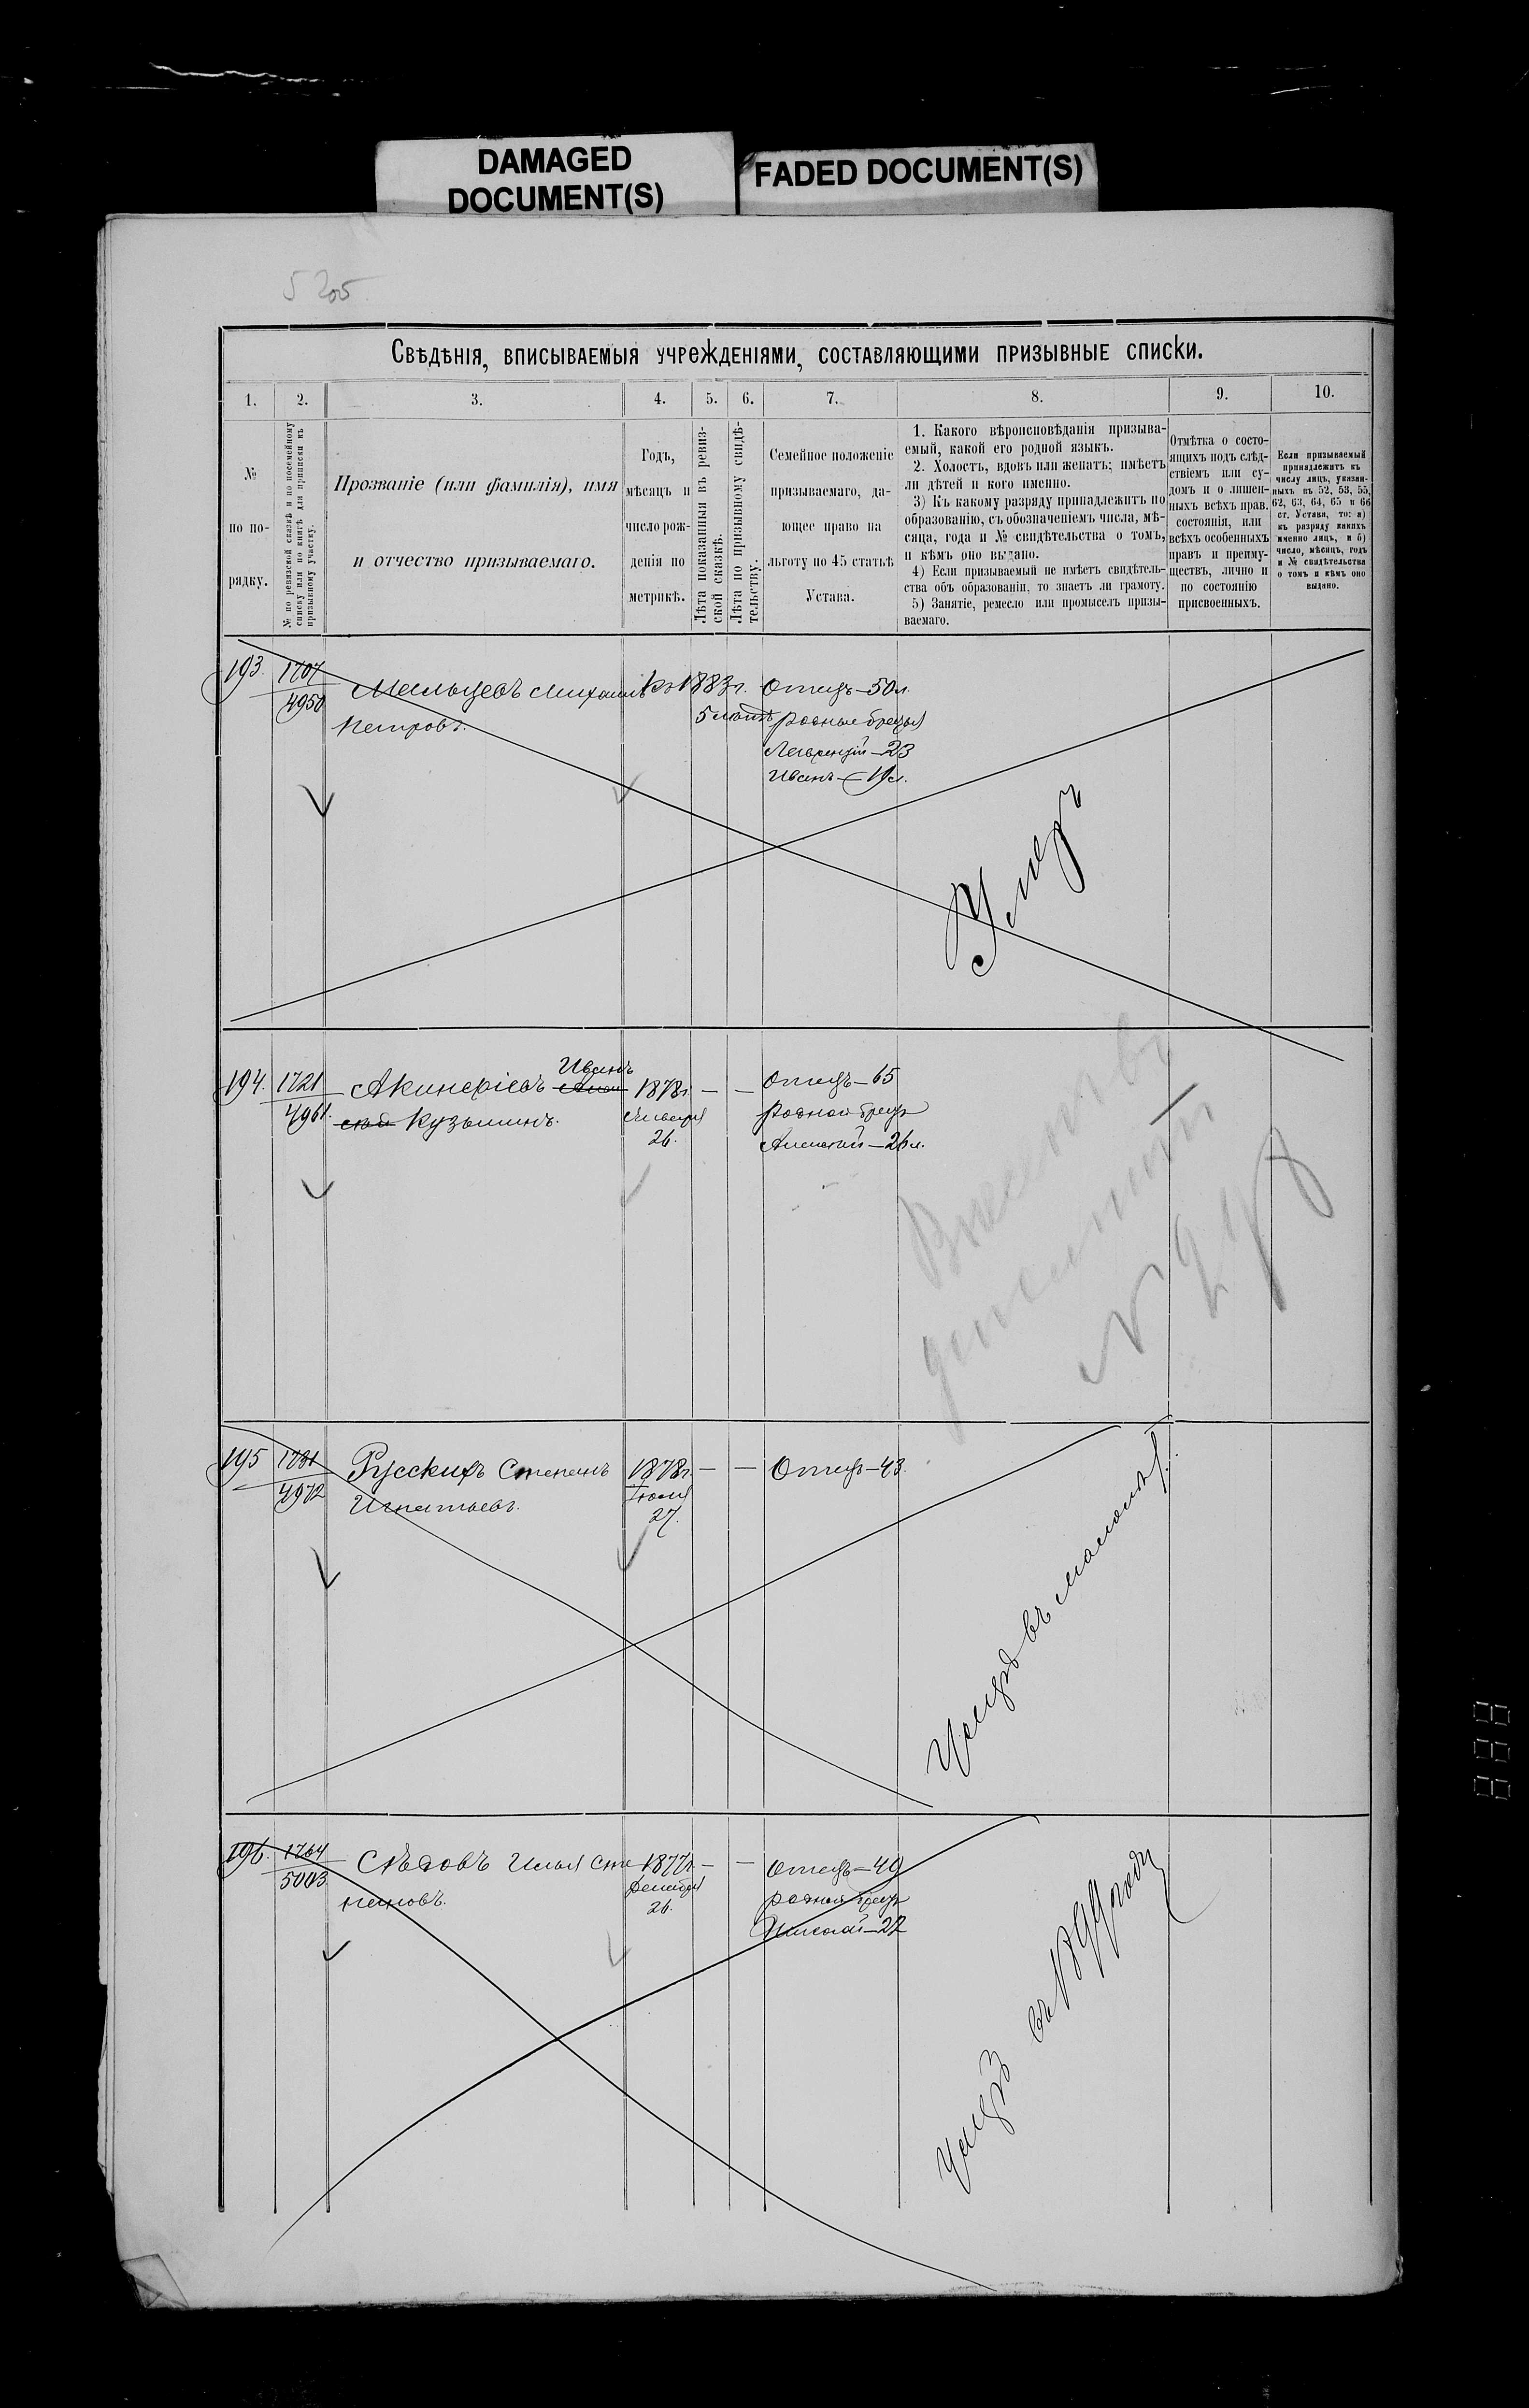 DAMAGED
DOCUMENT(S)
FADED DOCUMENT(S)
5205
Свѣдѣнія, вписываемыя учрежденіями, составляющими призывные списки.
1.
2.
3.
4.
5.
6.
7.
8.
9.
10.
№
по по-
рядку.
№ по ревизской сказкѣ и по посемейному
списку или по книгѣ для приписки къ
призывному участку.
Прозваніе (или фамилія), имя
и отчество призываемаго.
Годъ,
мѣсяцъ и
число рож-
денія по
метрикѣ.
Лѣта показанныя въ ревиз-
ской сказкѣ.
Лѣта по призывному свидѣ-
тельству.
Семейное положеніе
призываемаго, да-
ющее право на
льготу по 45 статьѣ
Устава.
1. Какого вѣроисповѣданія призыва-
емый, какой его родной языкъ.
2. Холостъ, вдовъ или женатъ; имѣетъ
ли дѣтей и кого именно.
3) Къ какому разряду принадлежитъ по
образованію, съ обозначеніемъ числа, мѣ-
сяца, года и № свидѣтельства о томъ,
и кѣмъ оно выдано.
4) Если призываемый не имѣетъ свидѣтель-
ства объ образованіи, то знаетъ ли грамоту.
5) Занятіе, ремесло или промыселъ призы-
ваемаго.
Отмѣтка о состо-
ящихъ подъ слѣд-
ствіемъ или су-
домъ и о лишен-
ныхъ всѣхъ прав.
состоянія, или
всѣхъ особенныхъ
правъ и преиму-
ществъ, лично и
по состоянію
присвоенныхъ.
Если призываемый
принадлежитъ къ
числу лицъ, указан-
ныхъ въ 52, 53, 55,
62, 63, 64, 65 и 66
ст. Устава, то: а)
къ разряду какихъ
именно лицъ, и б)
число, мѣсяцъ, годъ
и № свидѣтельства
о томъ и кѣмъ оно
выдано.
193.
1707
4950
Мальцевъ Михаилъ
Петровъ.
1883г.
Отецъ—50л.
родные братья
Лаврентій—23
Иванъ—19л.
Умеръ
194.
1721
4961.
Иванъ
Акинфіевъ
Кузьминъ.
1878г.
Января
26.
— —
Отецъ—65
родной братъ
Алексѣй—26л.
№ 298
195
1731
4972
Русскихъ Степанъ
Игнатьевъ.
1878г.
Іюля
27.
— —
Отецъ—43.
Умеръ въ малолѣт.
196.
1764
5003.
Сѣдовъ Илья Сте
пановъ.
1877г.
Декабря
26.
— —
Отецъ—49
родной братъ
Николай—22
Умеръ въ 1877 году